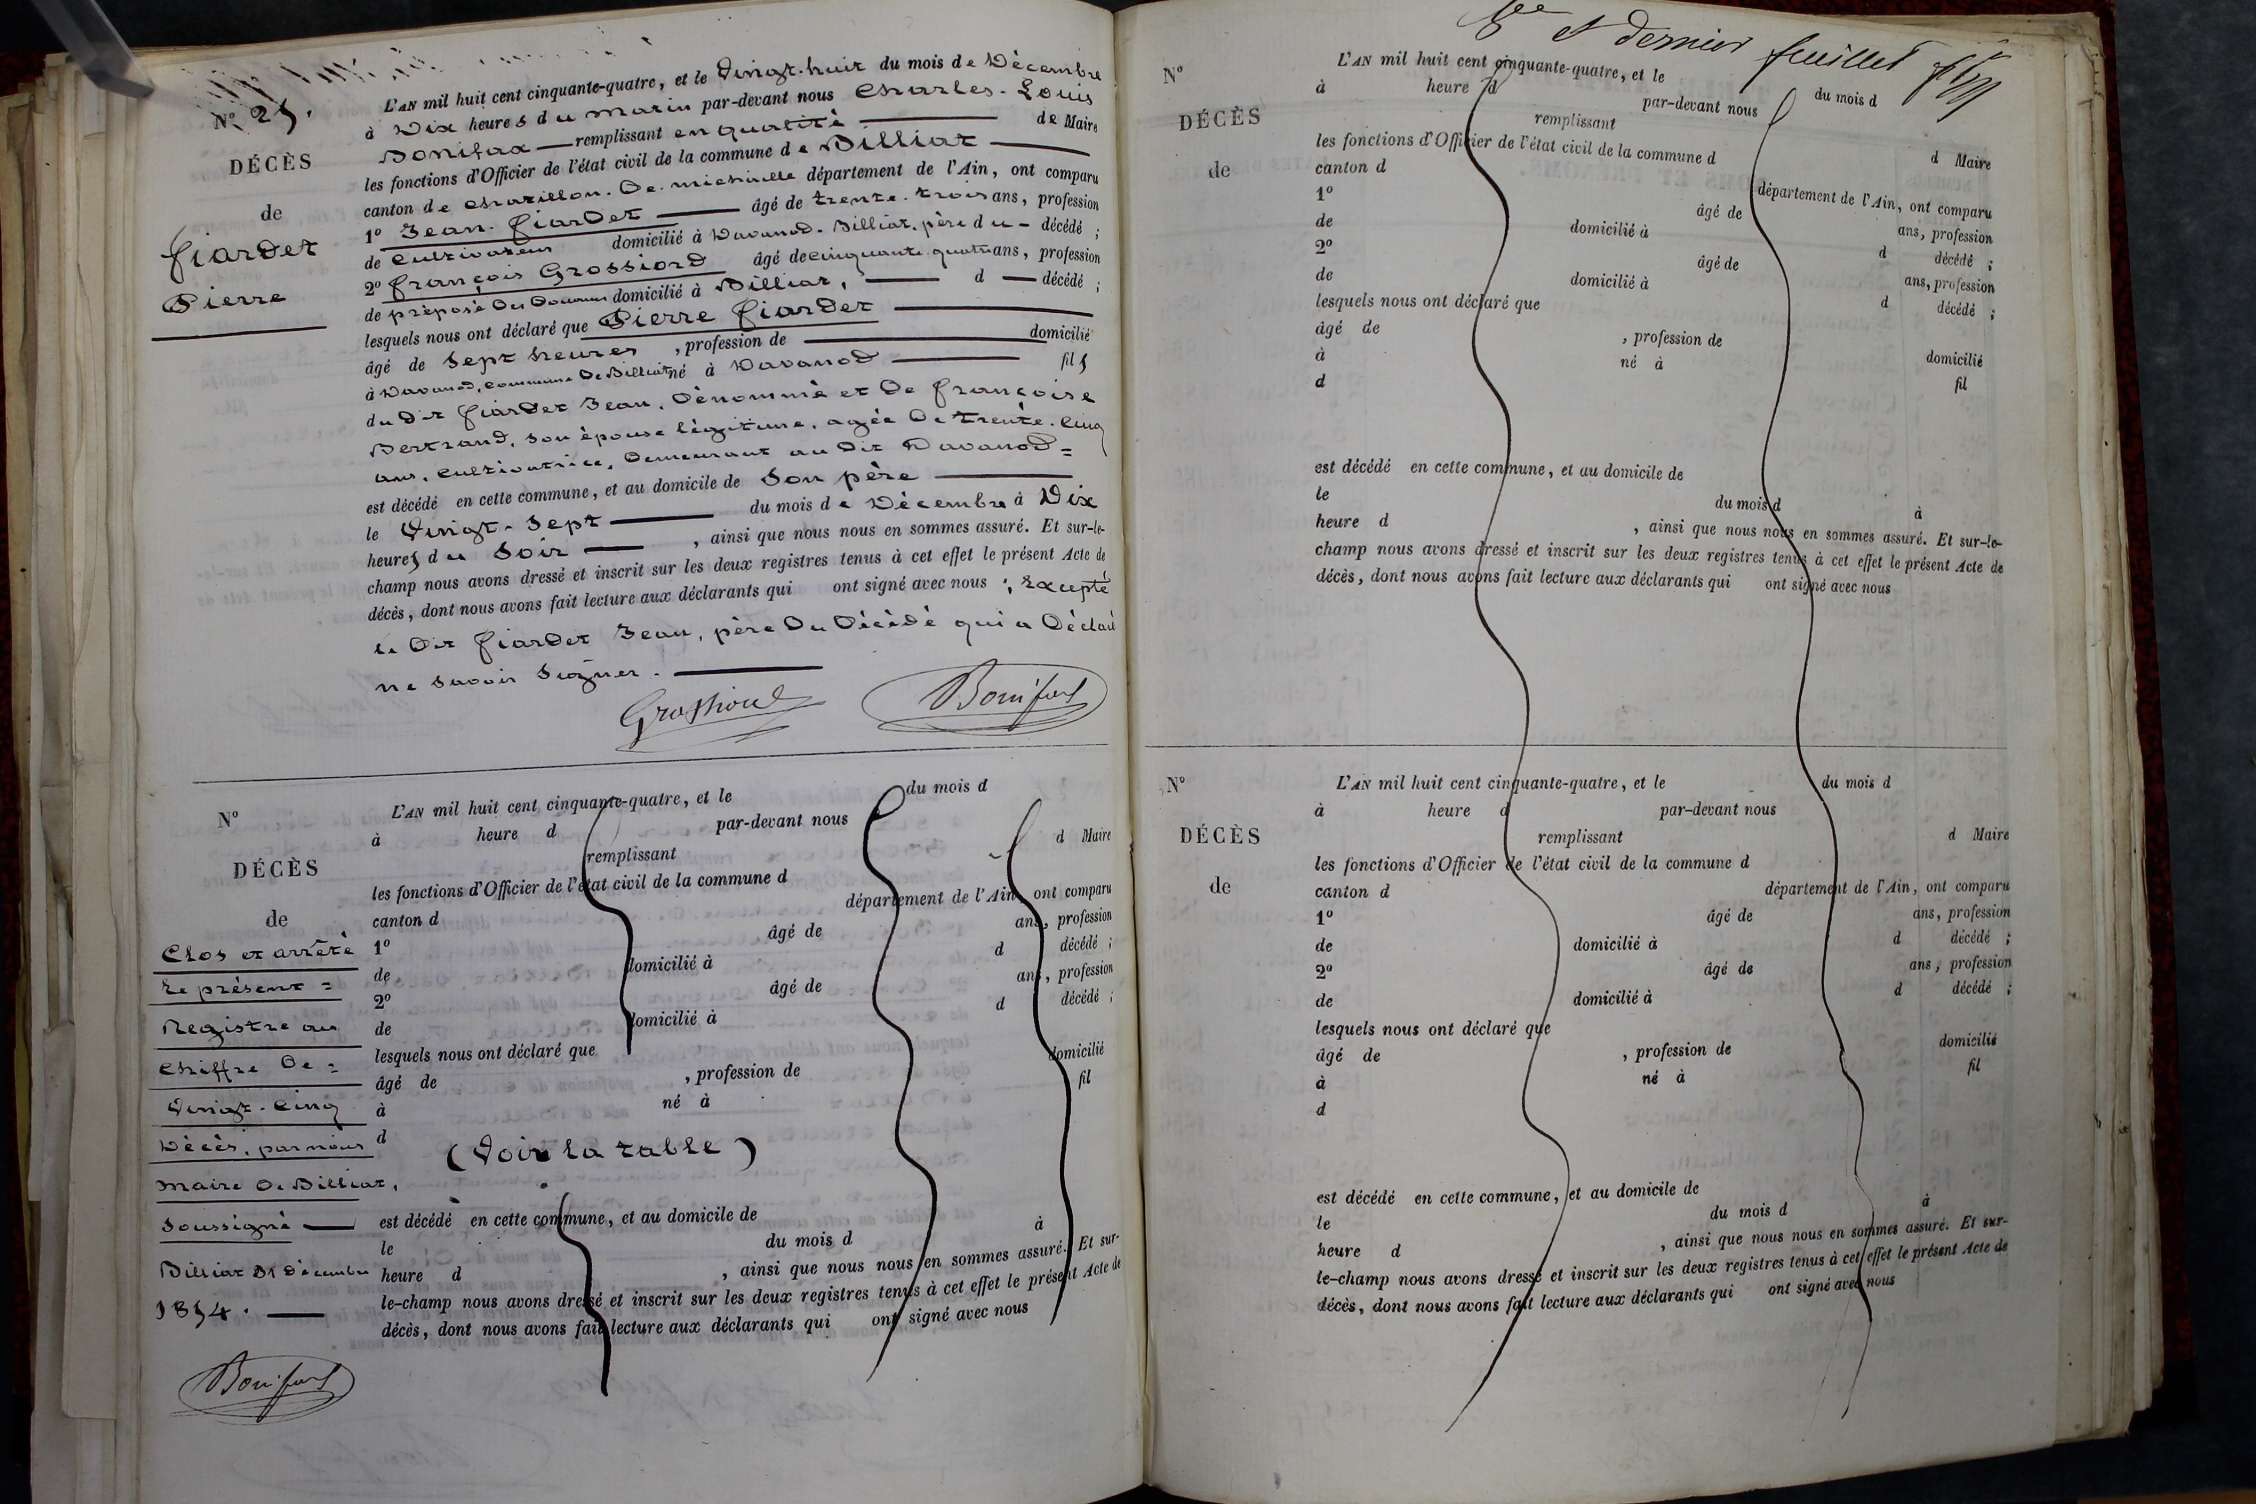 N° 25.
DÉCÈS
de
fiardet
Pierre
L'AN mil huit cent cinquante-quatre, et le Vingt-huit du mois de Décembre
à Dix heures du matin par-devant nous Charles-Louis
Bonifax — remplissant en qualité — de Maire
les fonctions d'Officier de l'état civil de la commune de Billiat —
canton de Chatillon-De-michaille département de l'Ain, ont comparu
1° Jean fiardet — âgé de trente-trois ans, profession
de Cultivateur domicilié à Davanod-Billiat, père du - décédé ;
2° françois Grossiord âgé de cinquante quatre ans, profession
de préposé Des Douanes domicilié à Billiat, — d — décédé ;
lesquels nous ont déclaré que Pierre fiardet —
âgé de Sept heures , profession de — domicilié
à Davanod, commune De Billiat né à Davanod — fils
du Dit fiardet Jean, Dénommé et De françoise
Bertrand, son épouse légitime, agée De trente-Cinq
ans, cultivatrice, Demeurant au Dit Davanod=
est décédé en cette commune, et au domicile de Son père —
le Vingt-Sept — du mois de Décembre à Dix
heures du Soir — , ainsi que nous nous en sommes assuré. Et sur-le-
champ nous avons dressé et inscrit sur les deux registres tenus à cet effet le présent Acte de
décès, dont nous avons fait lecture aux déclarants qui ont signé avec nous ; Excepté
le Dit fiardet Jean, père Du Décédé qui a Déclaré
ne Savoir Signer. —
Grossiord Bonifax
N°
DÉCÈS
de
Clos et arrêté
Le présent =
Registre au
Chiffre De =
Vingt-Cinq
Décès, par nous
Maire De Billiat,
Soussigné —
Billiat 31 Décembre
1854. —
Bonifax
L'AN mil huit cent cinquante-quatre, et le du mois d
à heure d par-devant nous
remplissant d Maire
les fonctions d'Officier de l'état civil de la commune d
canton d département de l'Ain, ont comparu
1° âgé de ans, profession
de domicilié à d décédé ;
2° âgé de ans, profession
de domicilié à d décédé ;
lesquels nous ont déclaré que
âgé de , profession de domicilié
à né à fil
d
(Voir la table)
est décédé en cette commune, et au domicile de
le du mois d à
heure d , ainsi que nous nous en sommes assuré. Et sur-
le-champ nous avons dressé et inscrit sur les deux registres tenus à cet effet le présent Acte de
décès, dont nous avons fait lecture aux déclarants qui ont signé avec nous
et dernier feuillet
N°
DÉCÈS
de
L'AN mil huit cent cinquante-quatre, et le du mois d
à heure d par-devant nous
remplissant d Maire
les fonctions d'Officier de l'état civil de la commune d
canton d département de l'Ain, ont comparu
1° âgé de ans, profession
de domicilié à d décédé ;
2° âgé de ans, profession
de domicilié à d décédé ;
lesquels nous ont déclaré que
âgé de , profession de domicilié
à né à fil
d
est décédé en cette commune, et au domicile de
le du mois d à
heure d , ainsi que nous nous en sommes assuré. Et sur-le-
champ nous avons dressé et inscrit sur les deux registres tenus à cet effet le présent Acte de
décès, dont nous avons fait lecture aux déclarants qui ont signé avec nous
N°
DÉCÈS
de
L'AN mil huit cent cinquante-quatre, et le du mois d
à heure d par-devant nous
remplissant d Maire
les fonctions d'Officier de l'état civil de la commune d
canton d département de l'Ain, ont comparu
1° âgé de ans, profession
de domicilié à d décédé ;
2° âgé de ans, profession
de domicilié à d décédé ;
lesquels nous ont déclaré que
âgé de , profession de domicilié
à né à fil
d
est décédé en cette commune, et au domicile de
le du mois d à
heure d , ainsi que nous nous en sommes assuré. Et sur-
le-champ nous avons dressé et inscrit sur les deux registres tenus à cet effet le présent Acte de
décès, dont nous avons fait lecture aux déclarants qui ont signé avec nous